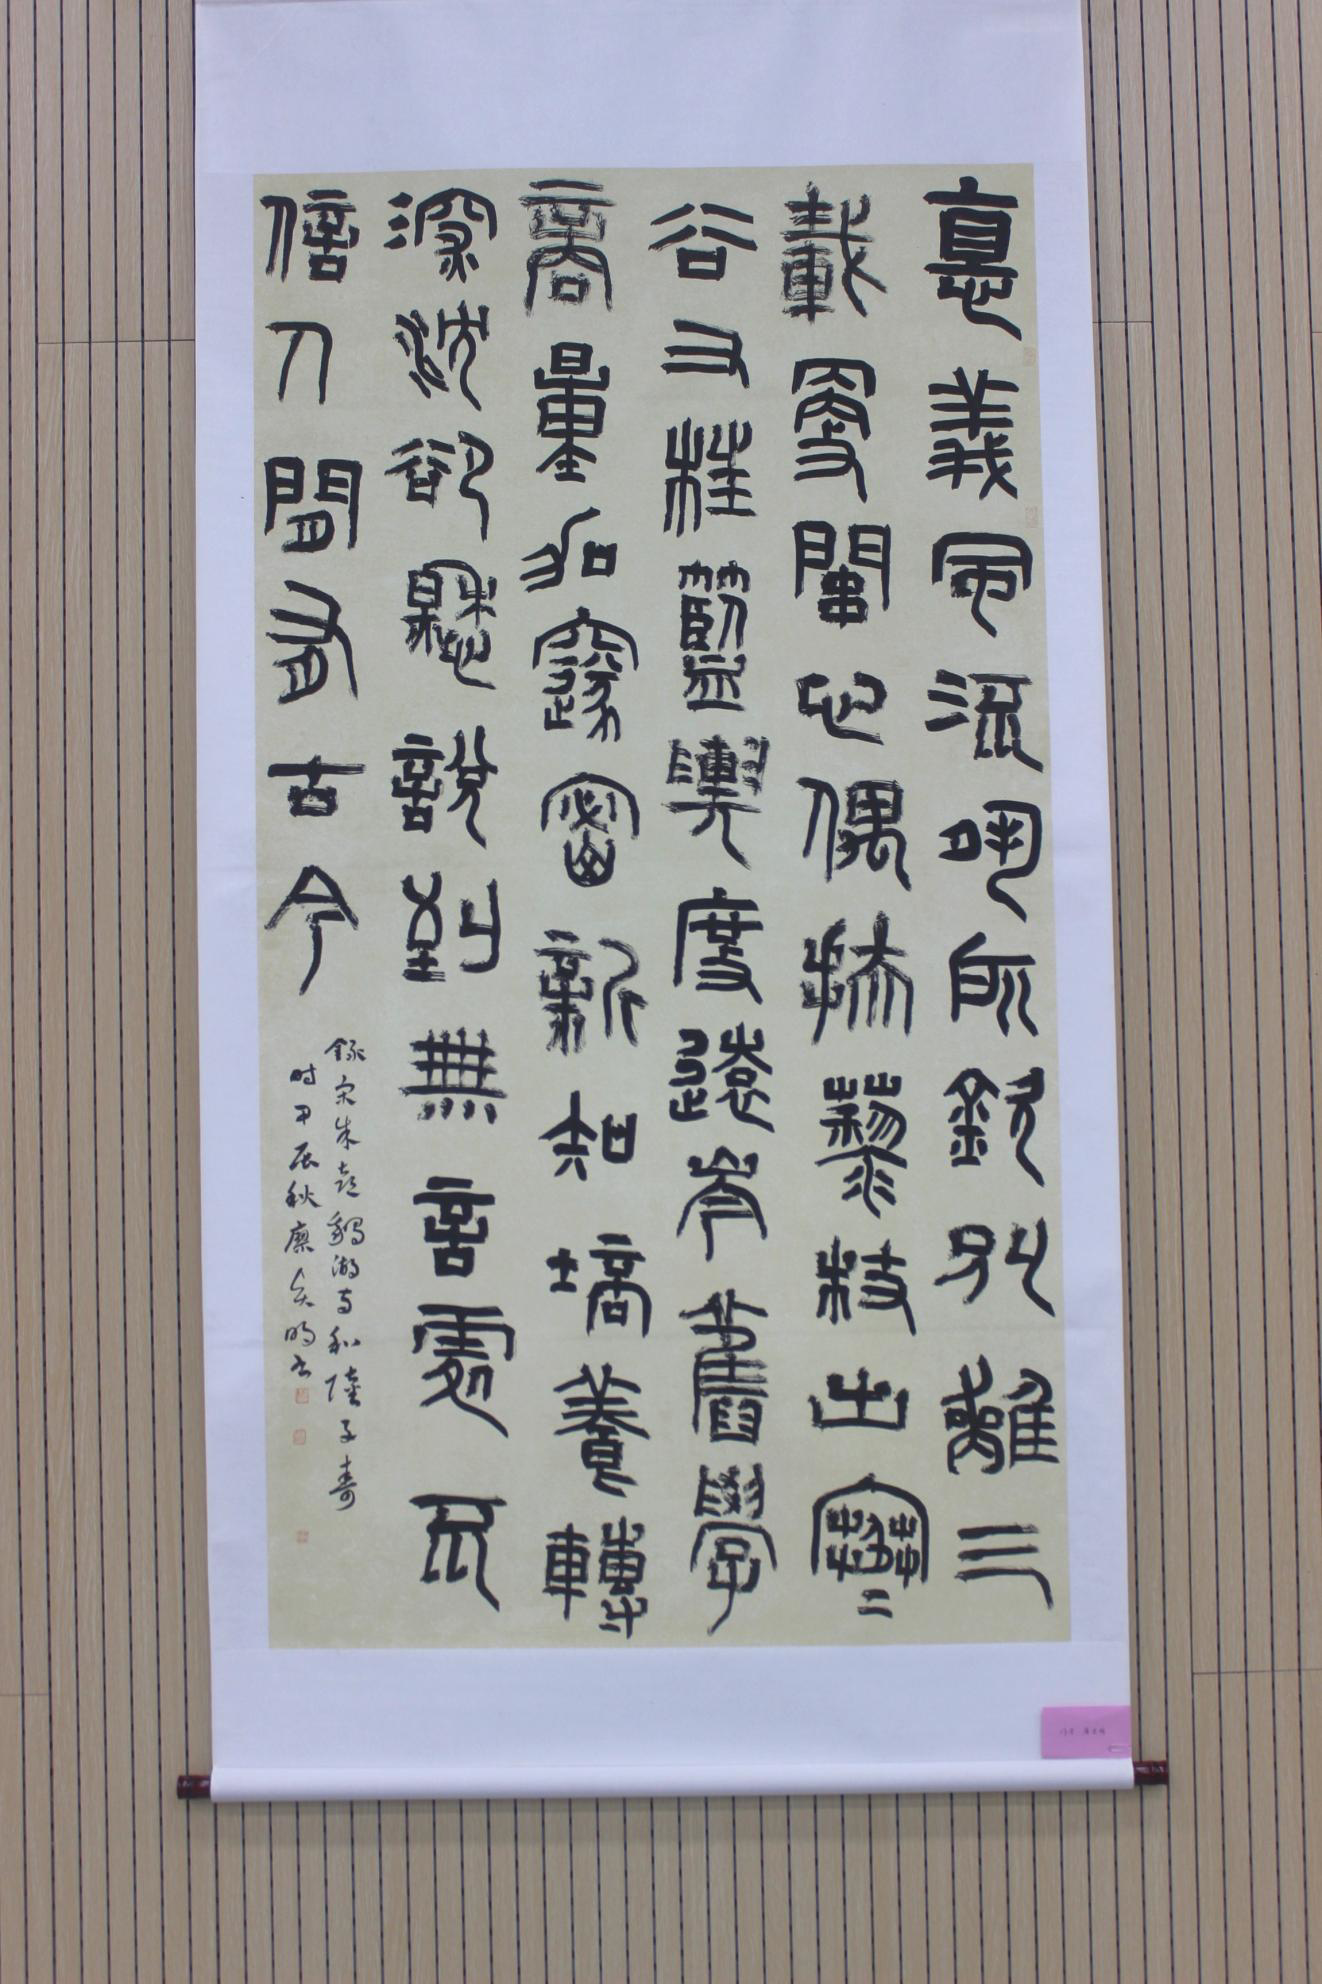 悳義風流夙所欽別離三
載更關心偶扶藜杖出寒
谷又枉籃輿度遠岑舊學
商量加邃密新知培養轉
深沈卻愁說到無言處不
信人間有古今
錄宋朱熹鵝湖寺和陸子壽
時甲辰秋